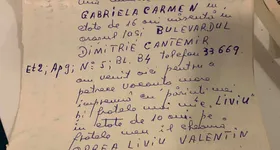 GABRIELA CARMEN în
etate de 16 ani
orașul Iași BULEVARDUL
DIMITRIE CANTEMIR
Et2, Ap9, No 5, BL. B4 telefon 33669
am venit aici pentru a
petrece vacanta
împreună cu părinții mei
și fratele meu mic "LIVIU"
în etate de 10 ani pe
fratele meu îl cheamă
OPREA LIVIU VALENTIN